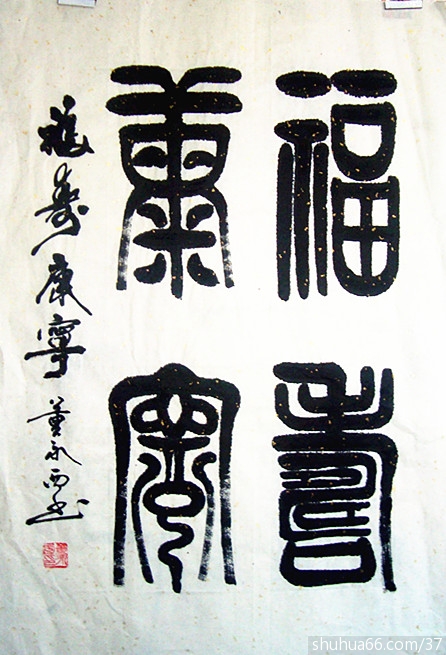 福壽
康寧
福寿康寧
董永西书
shuhua66.com/37